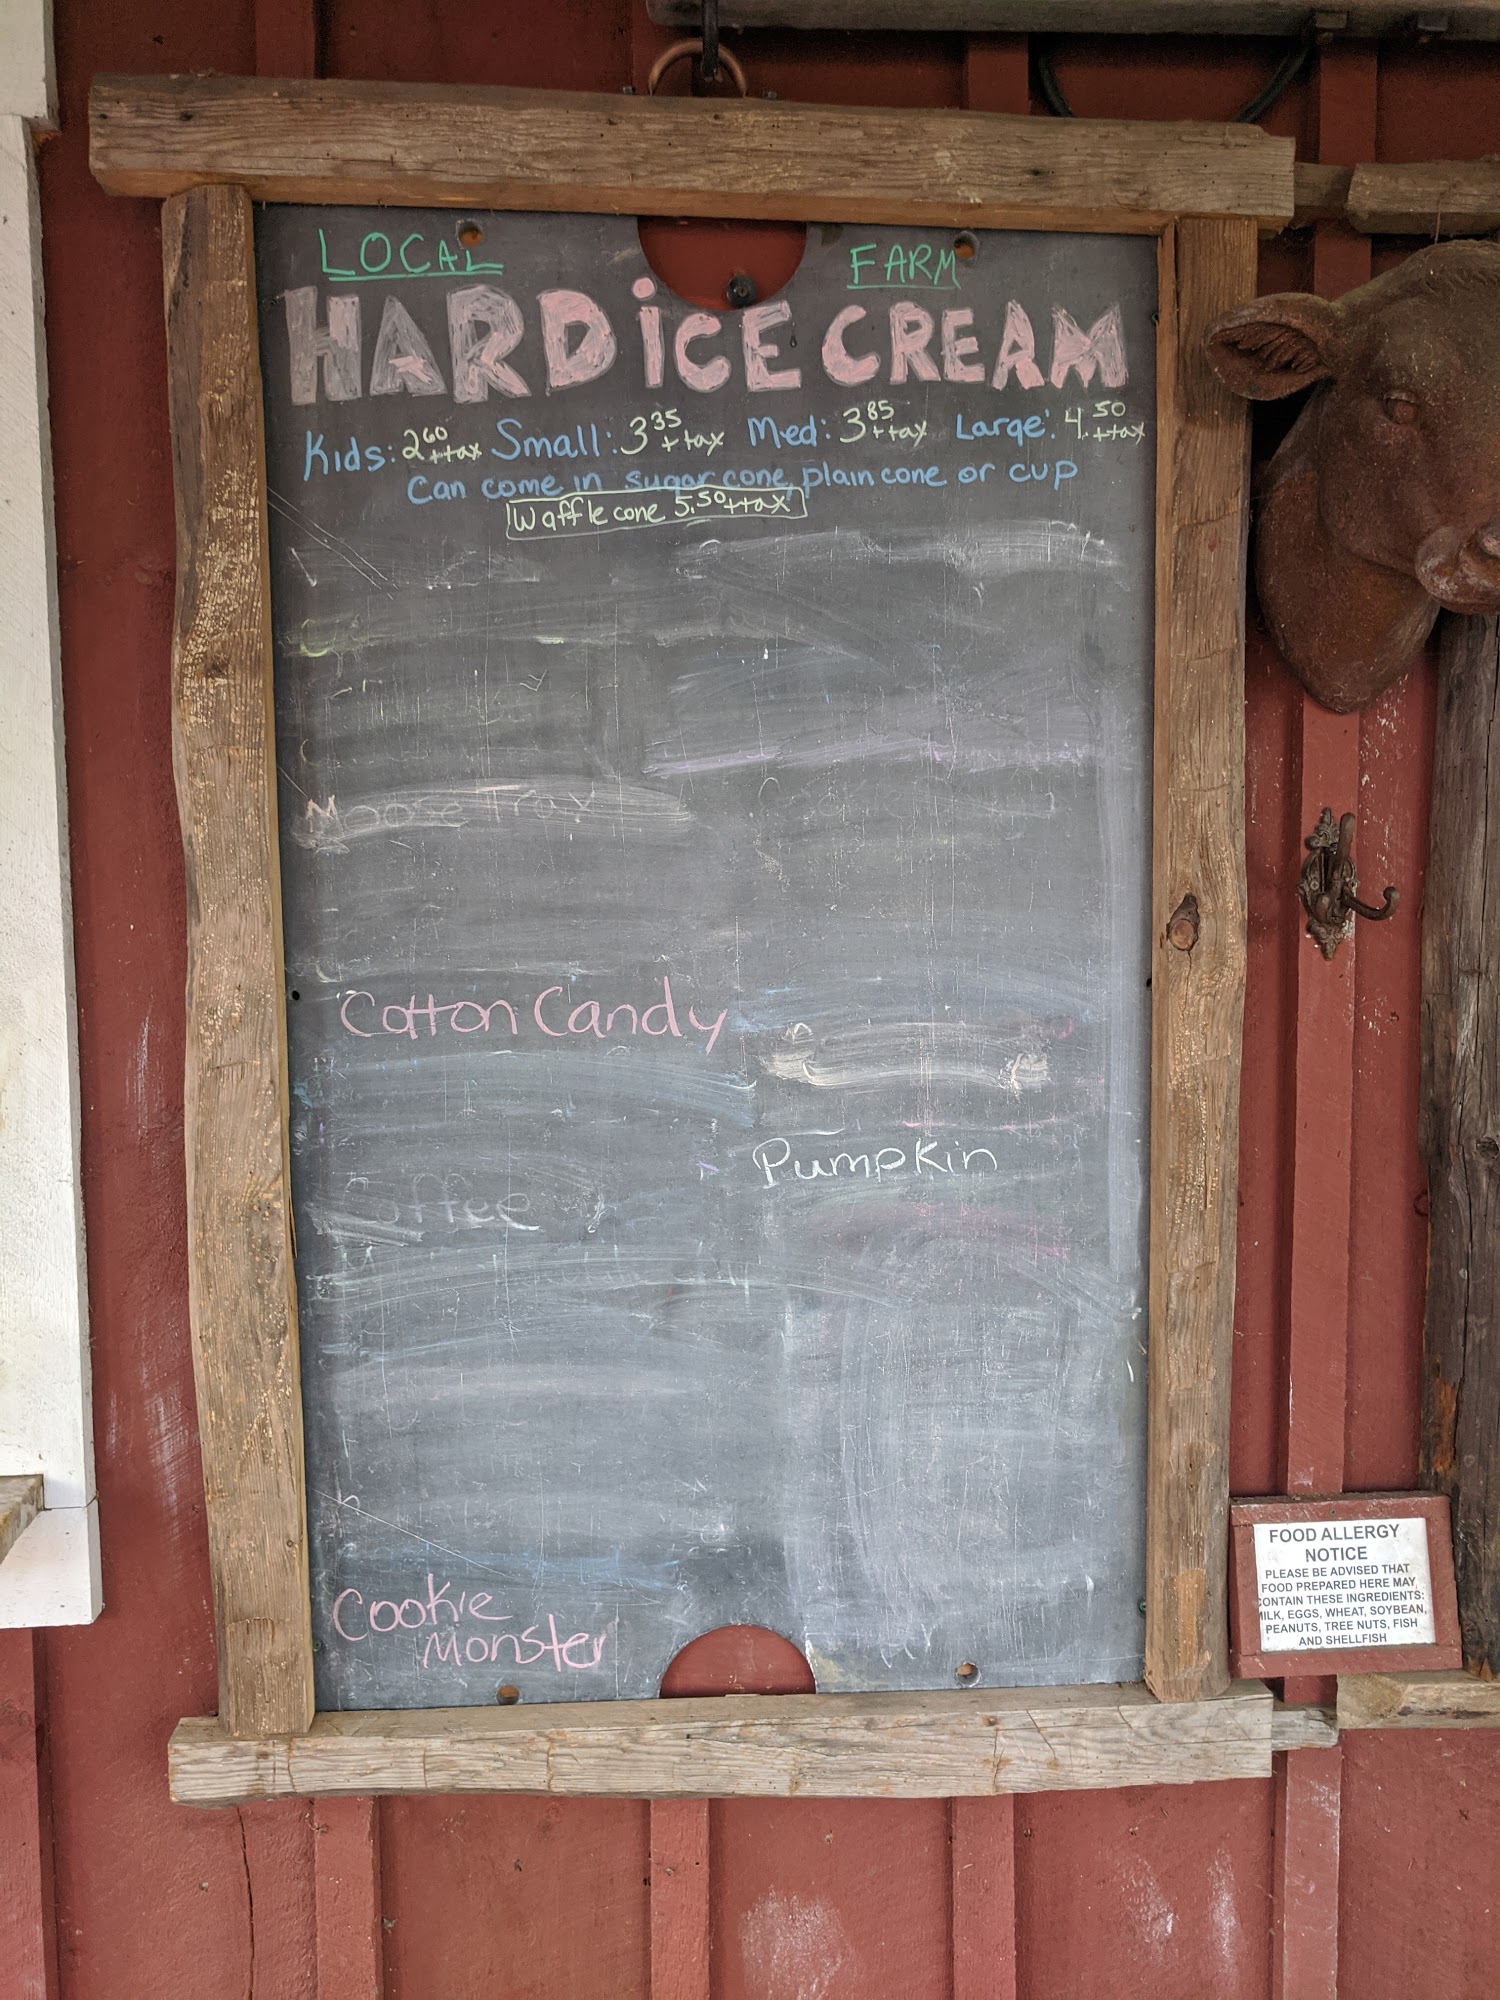 LOCAL FARM
HARD ICE CREAM
Kids: 2.60 + tax Small: 3.35 + tax Med: 3.85 + tax Large: 4.50 + tax
Can come in sugar cone, plain cone or cup
Waffle cone 5.50 + tax
Moose Trax
Cotton Candy
Pumpkin
Coffee
Cookie
Monster
FOOD ALLERGY
NOTICE
PLEASE BE ADVISED THAT
FOOD PREPARED HERE MAY
CONTAIN THESE INGREDIENTS:
MILK, EGGS, WHEAT, SOYBEAN,
PEANUTS, TREE NUTS, FISH
AND SHELLFISH